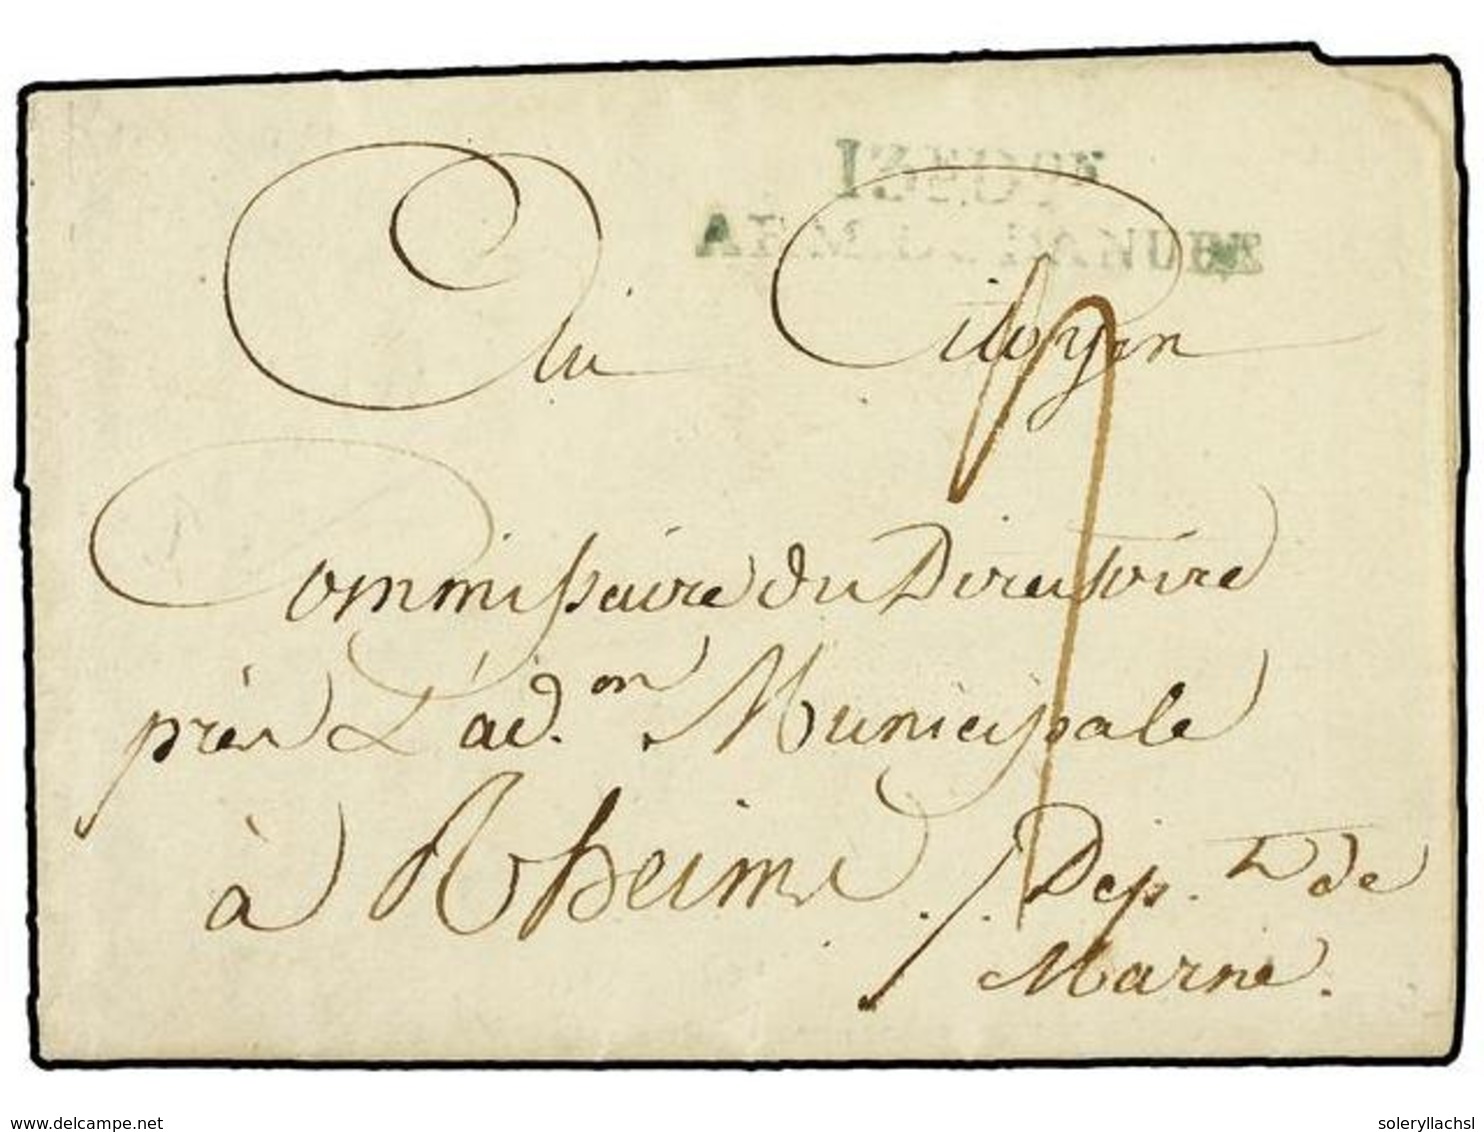 Au Citoyen
Commissaire du Directoire
près L'ad.on Municipale
à Rheims . / . Dép.t de
Marne.
www.delcampe.net
soleryllachsl